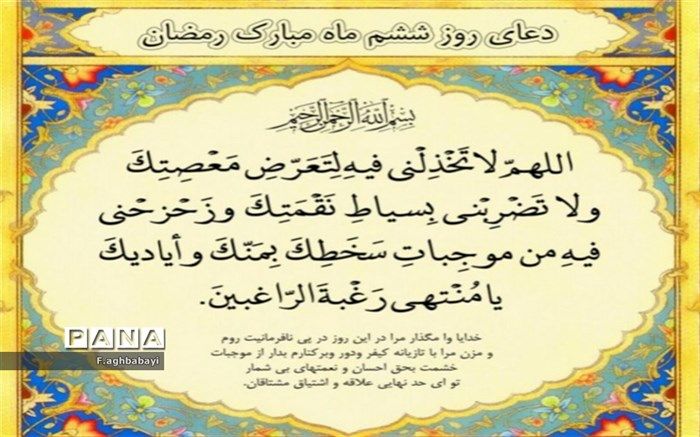 دعای روز ششم ماه مبارک رمضان
بِسْمِ اللَّهِ الرَّحْمَنِ الرَّحِيمِ
اللهمّ لا تَخْذِلْنی فیهِ لِتَعَرّضِ مَعْصِتِكَ
ولا تَضْرِبْنی بِسیاطِ نَقْمَتِكَ وزَحْزِحْنی
فیهِ من موجِباتِ سَخَطِكَ بِمَنّكَ وأیادیكَ
یا مُنْتهی رَغْبةَ الرّاغبینَ.
خدایا وا مگذار مرا در این روز در پی نافرمانیت روم
و مزن مرا با تازیانه کیفر ودور وبرکنارم بدار از موجبات
خشمت بحق احسان و نعمتهای بی شمار
تو ای حد نهایی علاقه و اشتیاق مشتاقان.
PANA
F.aghbabayi